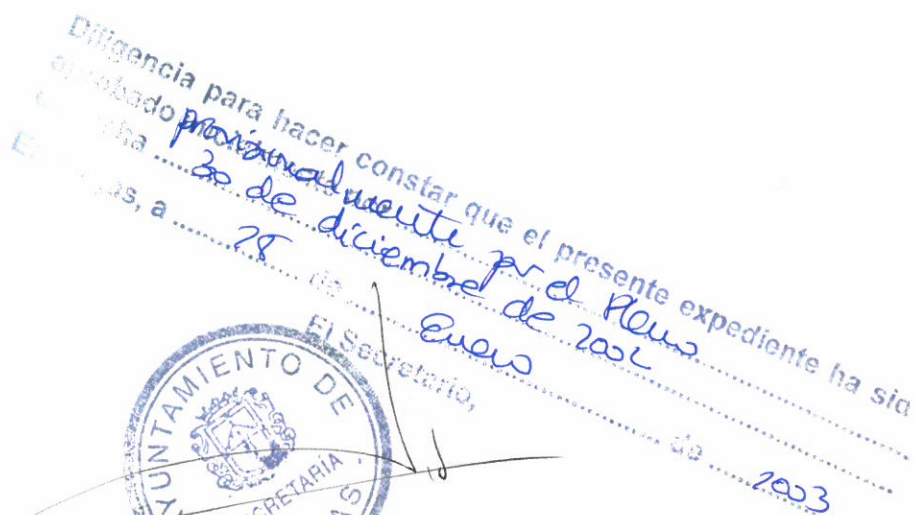 Diligencia para hacer constar que el presente expediente ha sid
aprobado provisionalmente por el Pleno
30 de diciembre de 2002
a 28 de Enero de 2003
El Secretario,
AYUNTAMIENTO DE
SECRETARÍA